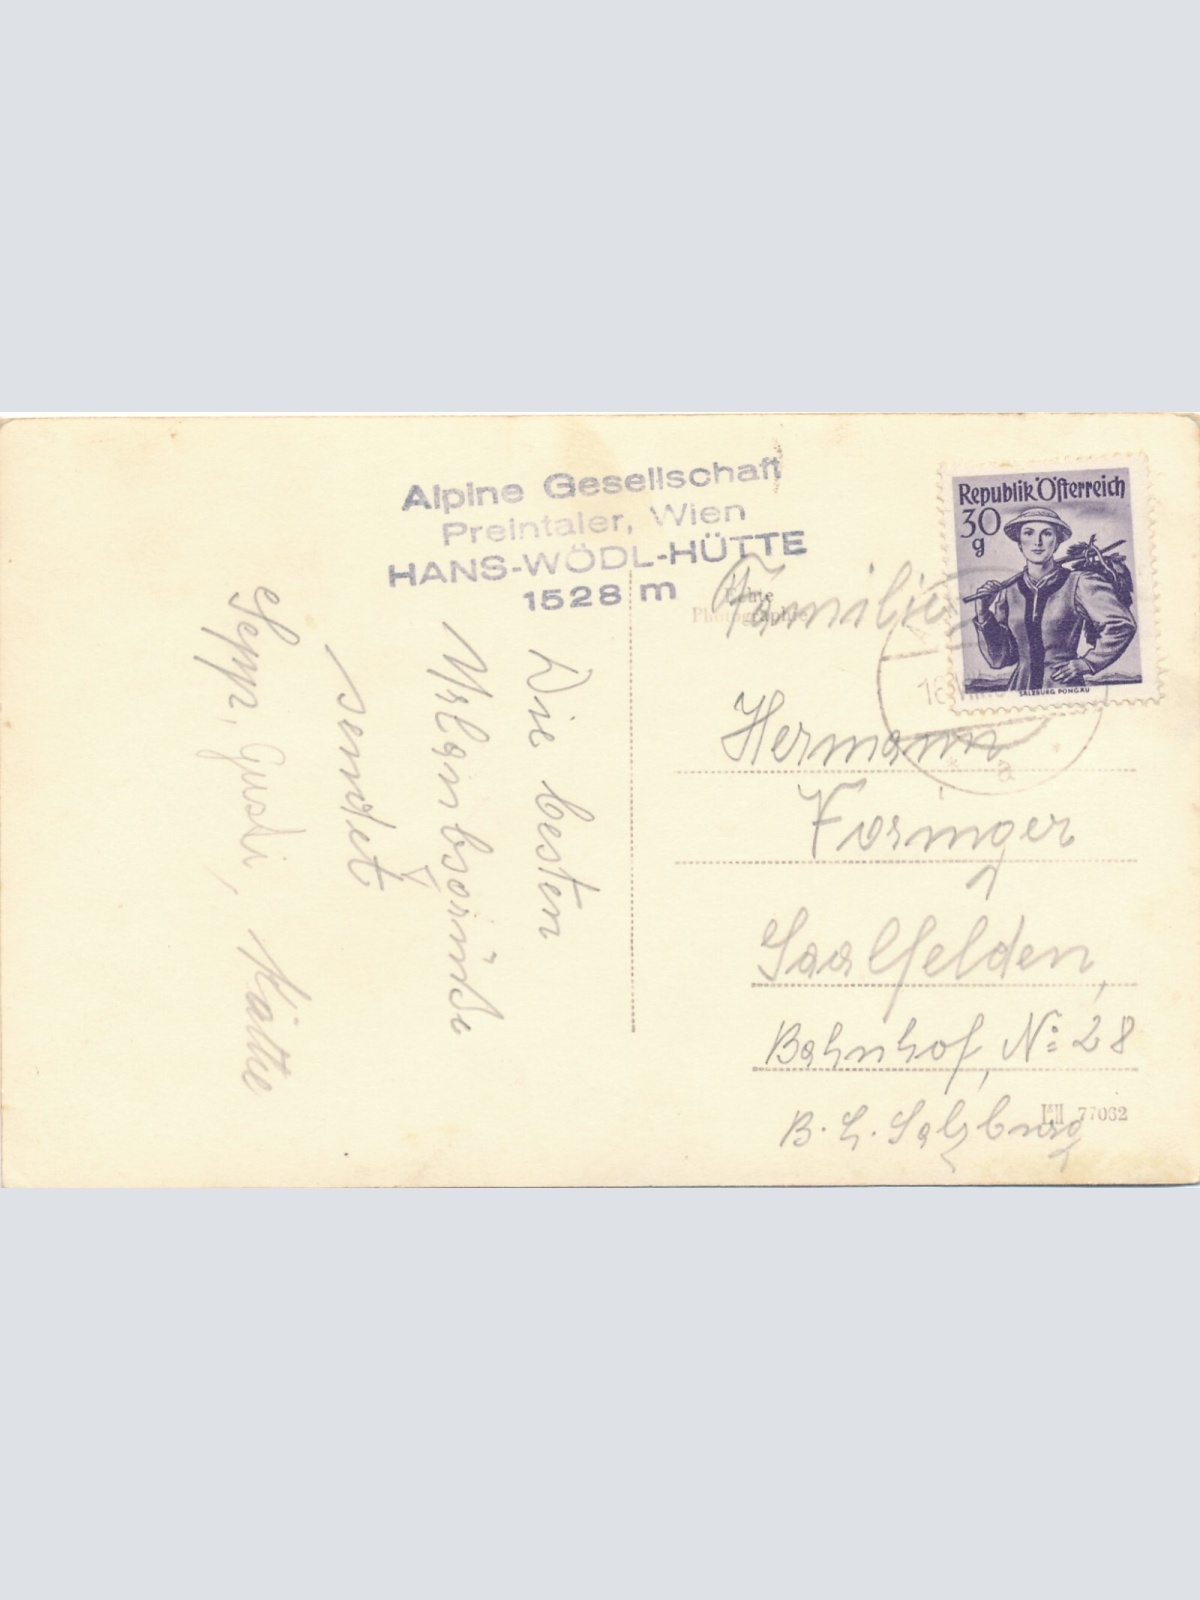 Alpine Gesellschaft
Preintaler, Wien
HANS-WÖDL-HÜTTE
1528 m
Die besten
Urlaubsgrüße
sendet
Sepp, Gusti,
Republik Österreich
30
g
SALZBURG PONGAU
Echte
Photographie
Familie
Hermann
Foringer
Saalfelden,
Bahnhof, No: 28
B. H. Salzburg
77062